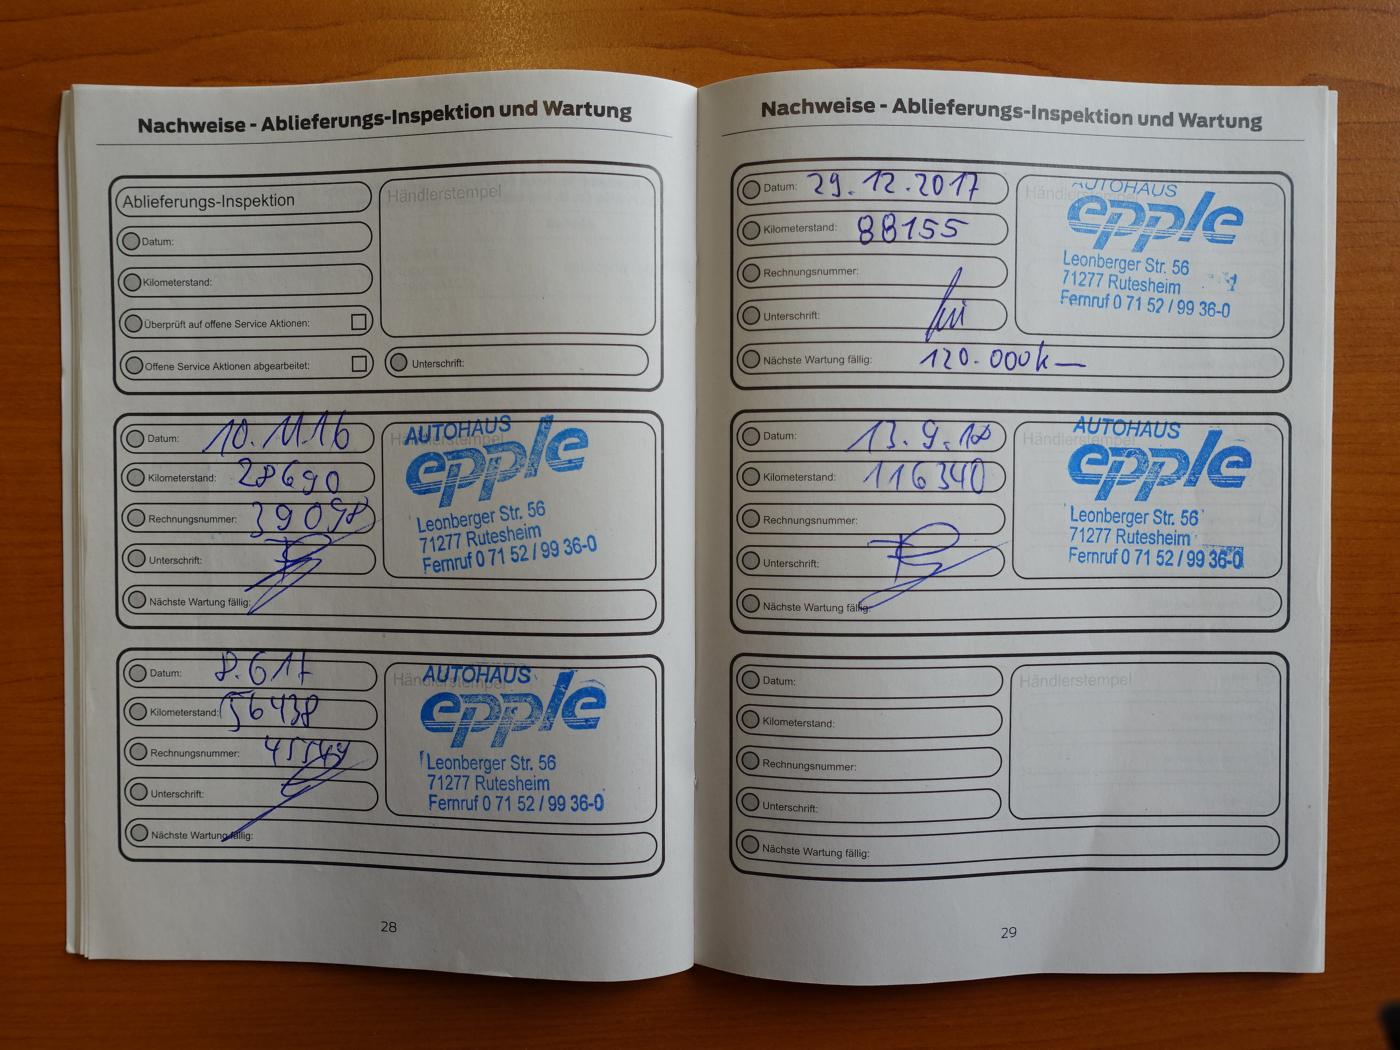 Nachweise - Ablieferungs-Inspektion und Wartung
Ablieferungs-Inspektion
Händlerstempel
Datum:
Kilometerstand:
Überprüft auf offene Service Aktionen:
Offene Service Aktionen abgearbeitet:
Unterschrift:
Datum: 10.1116
Händlerstempel
AUTOHAUS
epple
Kilometerstand: 28690
Rechnungsnummer: 39098
Leonberger Str. 56
71277 Rutesheim
Fernruf 0 71 52 / 99 36-0
Unterschrift:
Nächste Wartung fällig:
Datum: 8.617
Händlerstempel
AUTOHAUS
epple
Kilometerstand: 56438
Rechnungsnummer: 45549
Leonberger Str. 56
71277 Rutesheim
Fernruf 0 71 52 / 99 36-0
Unterschrift:
Nächste Wartung fällig:
28
Nachweise - Ablieferungs-Inspektion und Wartung
Datum: 29.12.2017
AUTOHAUS
epple
Kilometerstand: 88155
Rechnungsnummer:
Leonberger Str. 56
71277 Rutesheim
Fernruf 0 71 52 / 99 36-0
Unterschrift:
Nächste Wartung fällig: 120.000k
Datum: 13.9.18
Händlerstempel
AUTOHAUS
epple
Kilometerstand: 116340
Rechnungsnummer:
Leonberger Str. 56
71277 Rutesheim
Fernruf 0 71 52 / 99 36-0
Unterschrift:
Nächste Wartung fällig:
Datum:
Händlerstempel
Kilometerstand:
Rechnungsnummer:
Unterschrift:
Nächste Wartung fällig:
29